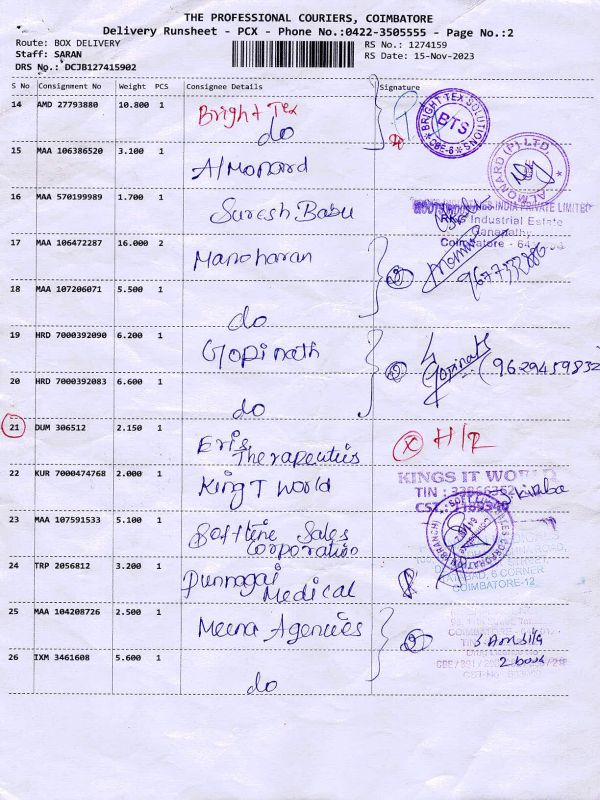 THE PROFESSIONAL COURIERS, COIMBATORE
Delivery Runsheet - PCX - Phone No.:0422-3505555 - Page No.:2
Route: BOX DELIVERY
Staff: SARAN
DRS No.: DCJB127415902
RS No.: 1274159
RS Date: 15-Nov-2023
S No Consignment No Weight PCS Consignee Details Signature
14 AMD 27793880 10.800 1 Bright Tex
do
BRIGHT TEX SOLUTIONS
BTS
CBE-6
15 MAA 106386520 3.100 1 A/Monard
ALMONARD (P) LTD
16 MAA 570199989 1.700 1 Suresh Babu
INDIA PRIVATE LIMITED
RKG Industrial Estate
Ganapathy
Coimbatore - 64
17 MAA 106472287 16.000 2 Manoharan
18 MAA 107206071 5.500 1
do
19 HRD 7000392090 6.200 1 Gopinath
Gopinath (9629459832
20 HRD 7000392083 6.600 1
do
21 DUM 306512 2.150 1 Eris
Therapeutics
X H/R
22 KUR 7000474768 2.000 1 King T World
KINGS IT WORLD
TIN : 33866352
CST.: 1189340
23 MAA 107591533 5.100 1 Softline Sales
Corporation
24 TRP 2056812 3.200 1 Punnagai
Medical
6 CORNER
COIMBATORE-12
25 MAA 104208726 2.500 1 Meena Agencies
26 IXM 3461608 5.600 1
2 box
do